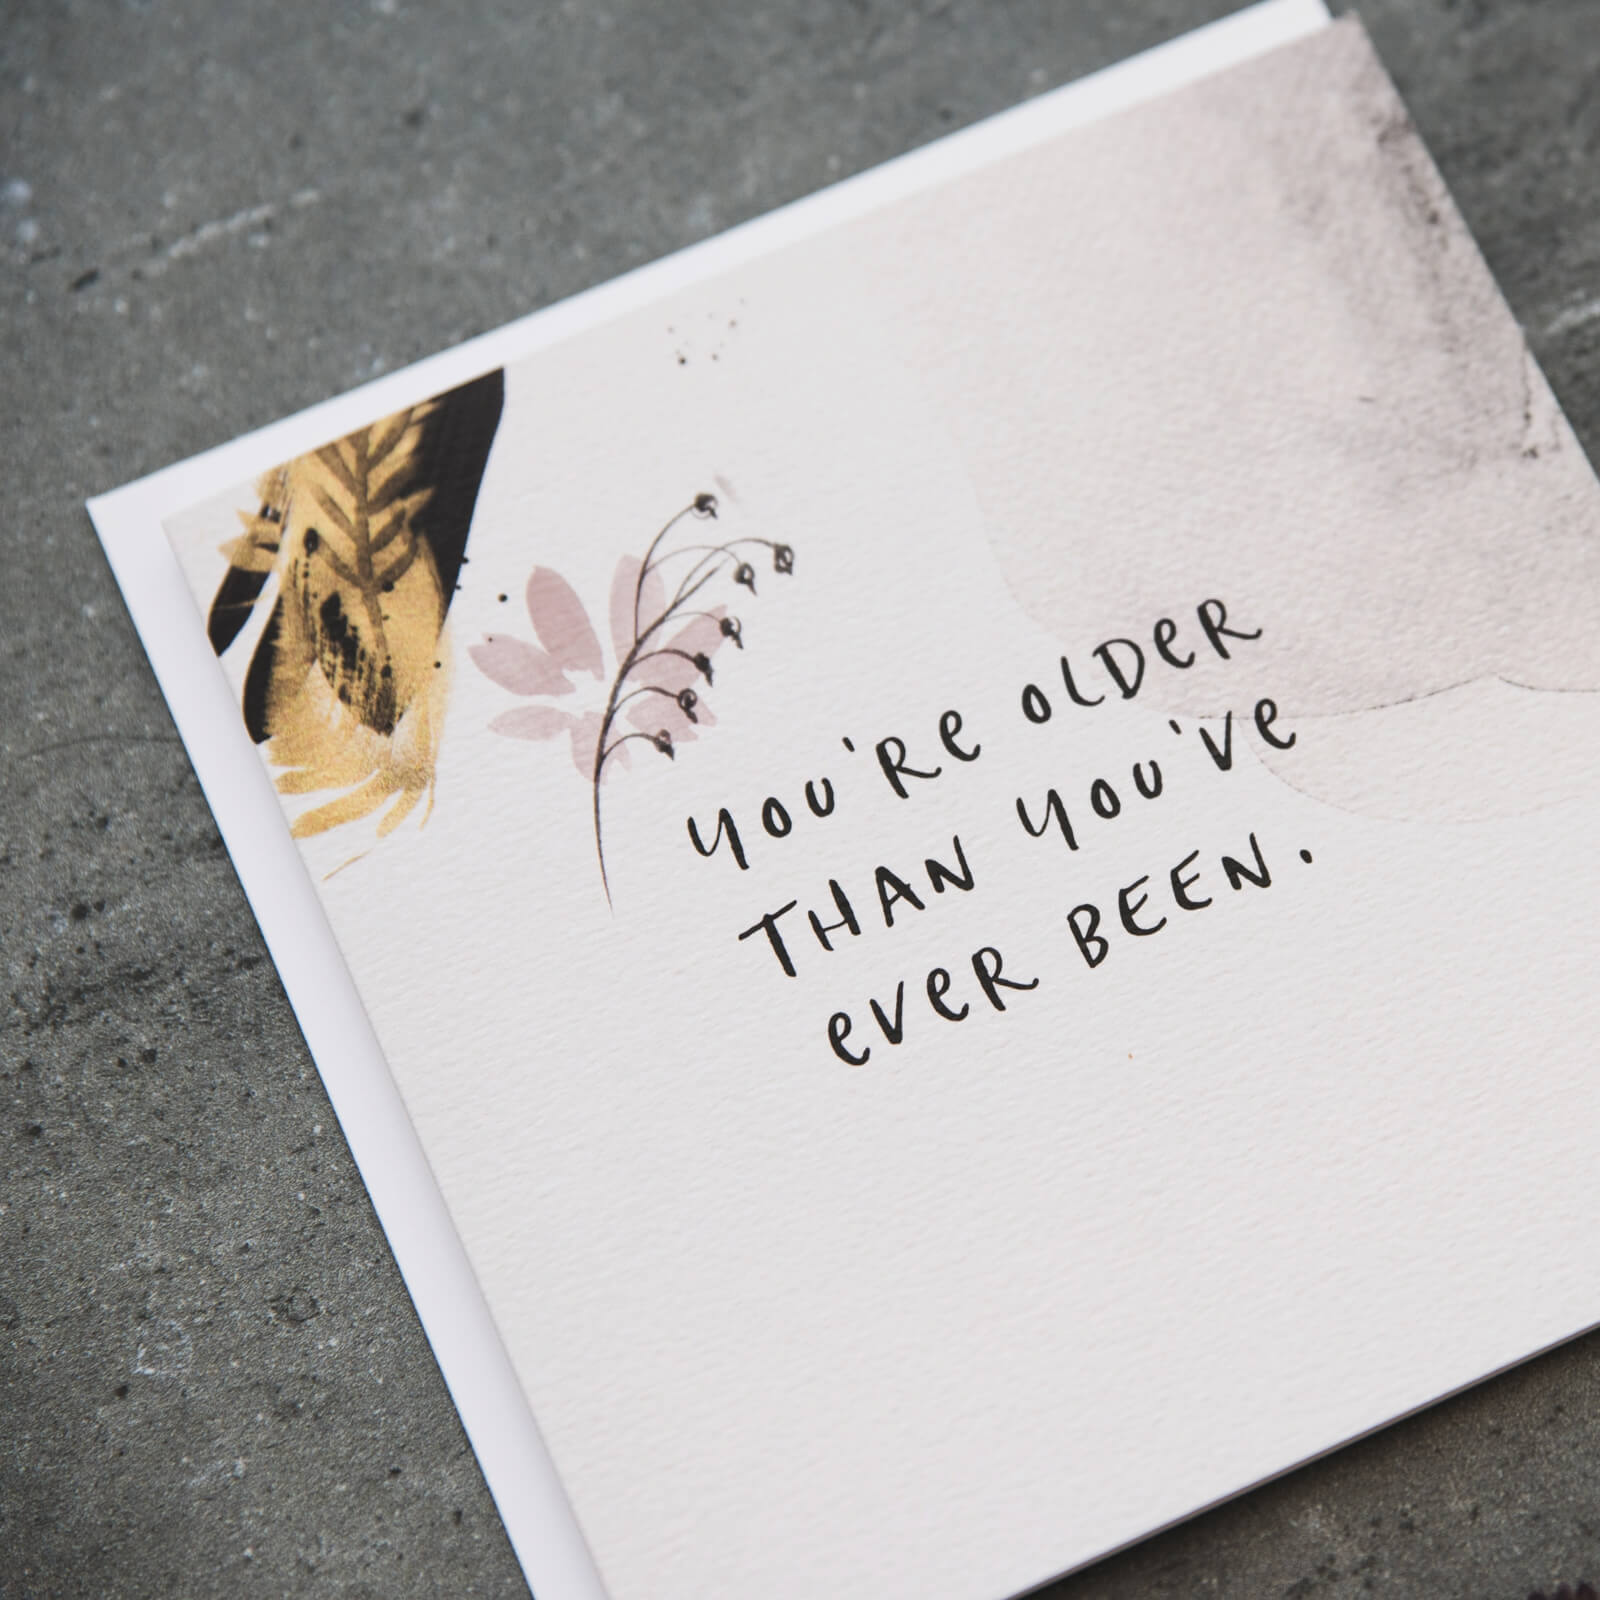 YOU'Re OLDeR
THAN YOU'Ve
eVeR BEEN.